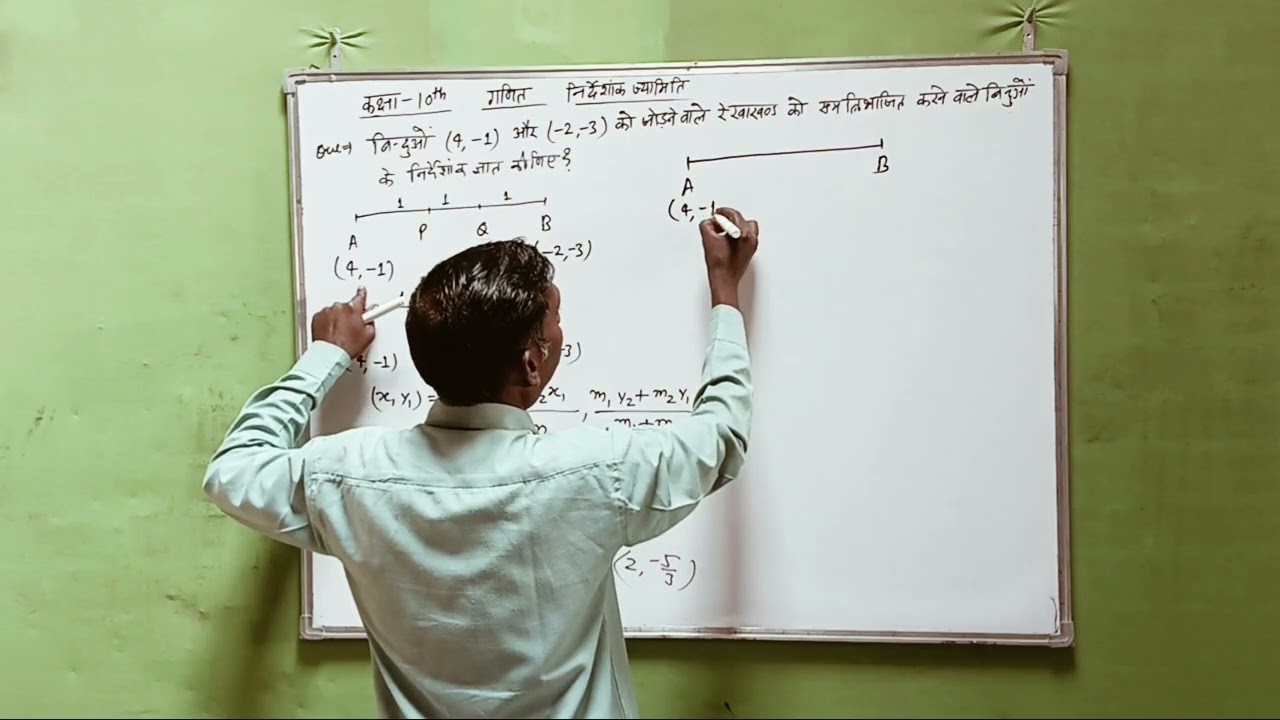 कक्षा-10th गणित निर्देशांक ज्यामिति
Que→ बिन्दुओं (4, -1) और (-2, -3) को जोड़ने वाले रेखाखण्ड को सम त्रिभाजित करने वाले बिंदुओं
के निर्देशांक ज्ञात कीजिए?
1 1 1
A P Q B
(4, -1) (-2, -3)
4, -1) -3)
(x, y,) = 2x1 , m1 y2 + m2 y1
m1 + m
(2, -5/3)
A B
(4, -1